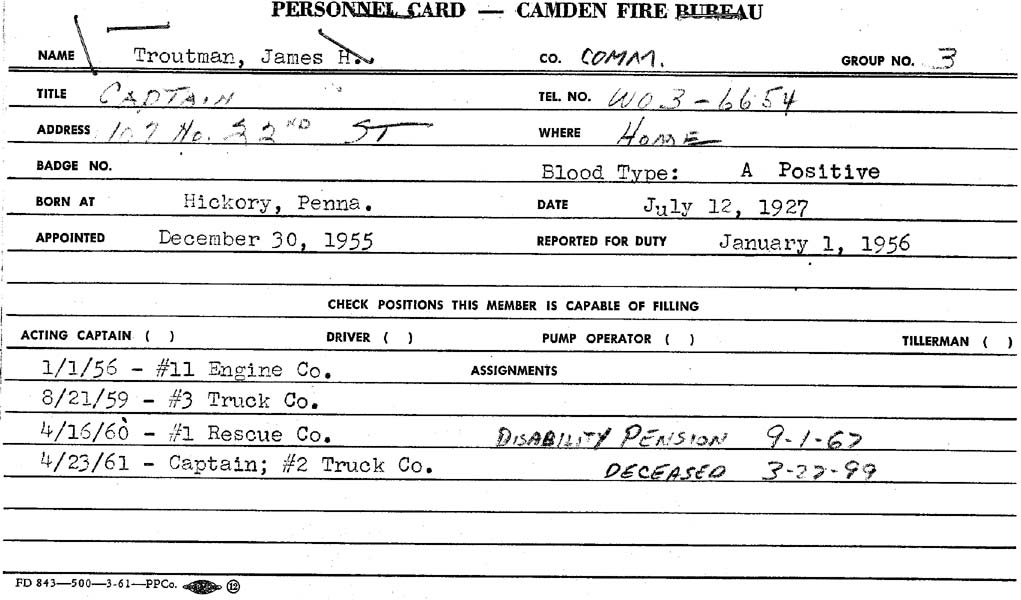 PERSONNEL CARD — CAMDEN FIRE BUREAU
NAME Troutman, James H. CO. COMM. GROUP NO. 3
TITLE CAPTAIN TEL. NO. WO 3-6654
ADDRESS 107 No. 22ND ST WHERE HOME
BADGE NO. Blood Type: A Positive
BORN AT Hickory, Penna. DATE July 12, 1927
APPOINTED December 30, 1955 REPORTED FOR DUTY January 1, 1956
CHECK POSITIONS THIS MEMBER IS CAPABLE OF FILLING
ACTING CAPTAIN ( ) DRIVER ( ) PUMP OPERATOR ( ) TILLERMAN ( )
1/1/56 - #11 Engine Co. ASSIGNMENTS
8/21/59 - #3 Truck Co.
4/16/60 - #1 Rescue Co. DISABILITY PENSION 9-1-67
4/23/61 - Captain; #2 Truck Co. DECEASED 3-22-99
FD 843—500—3-61—PPCo. 12